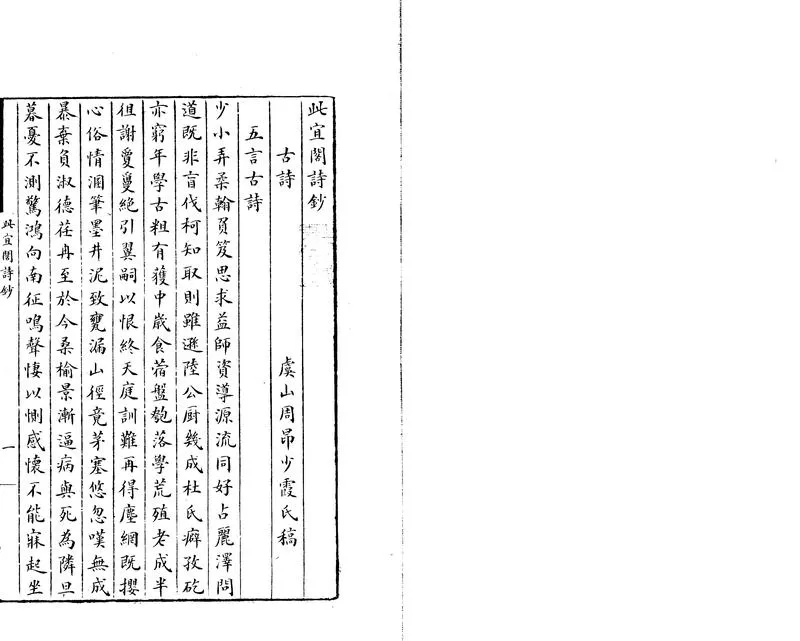 此宜閣詩鈔
古詩 虞山周昂少霞氏稿
五言古詩
少小弄柔翰負笈思求益師資導源流同好占麗澤問
道既非盲伐柯知取則雖遜陸公厨幾成杜氏癖孜矻
亦窮年學古粗有獲中歲食蓿盤匏落學荒殖老成半
徂謝愛夐絕引翼嗣以恨終天庭訓難再得塵網既攖
心俗情溷筆墨井泥致甕漏山徑竟茅塞悠忽嘆無成
暴棄負淑德荏冉至於今桑榆景漸逼病與死為隣旦
暮憂不測驚鴻向南征鳴聲悽以惻感懷不能寐起坐
此宜閣詩鈔 一